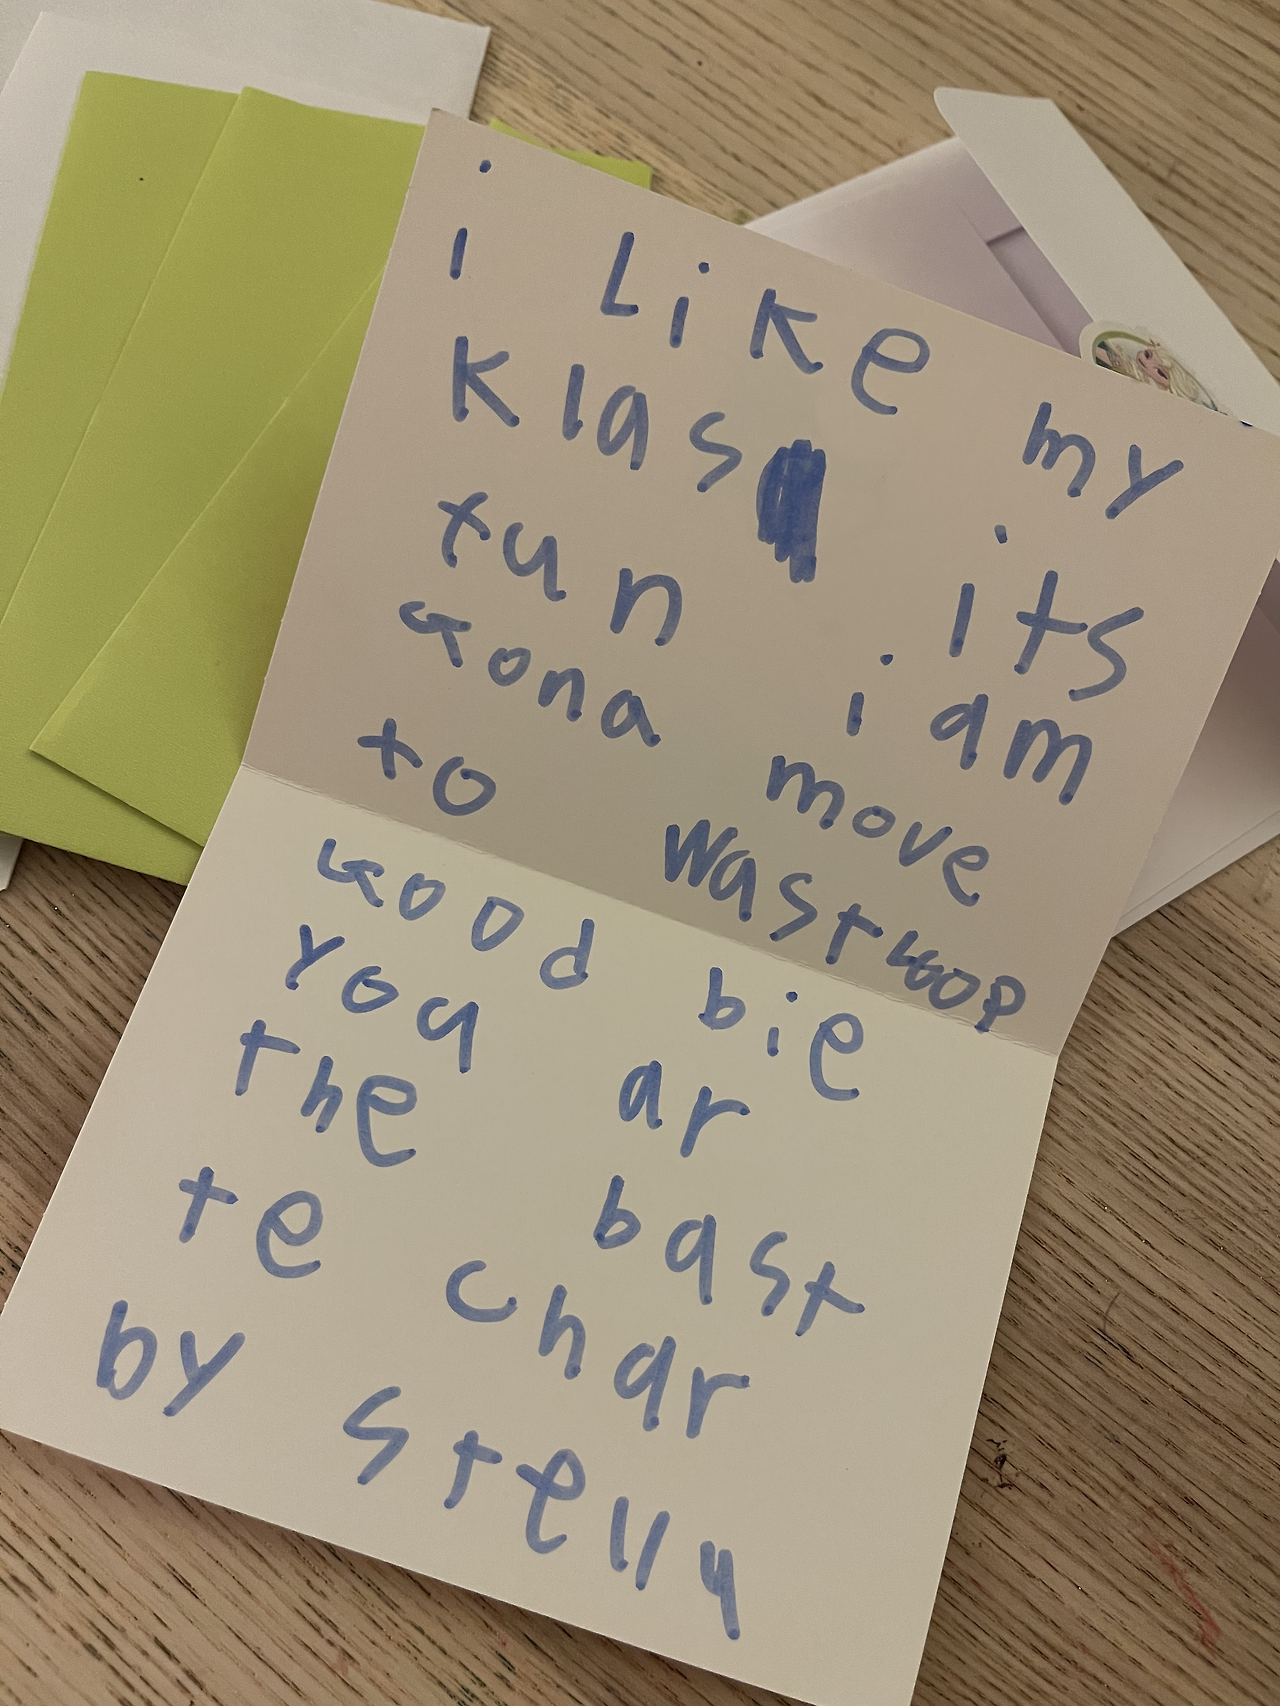 i Like my
klas its
fun i am
Gona move
to Wastloop
Good bie
you ar
the bast
te char
by stelly